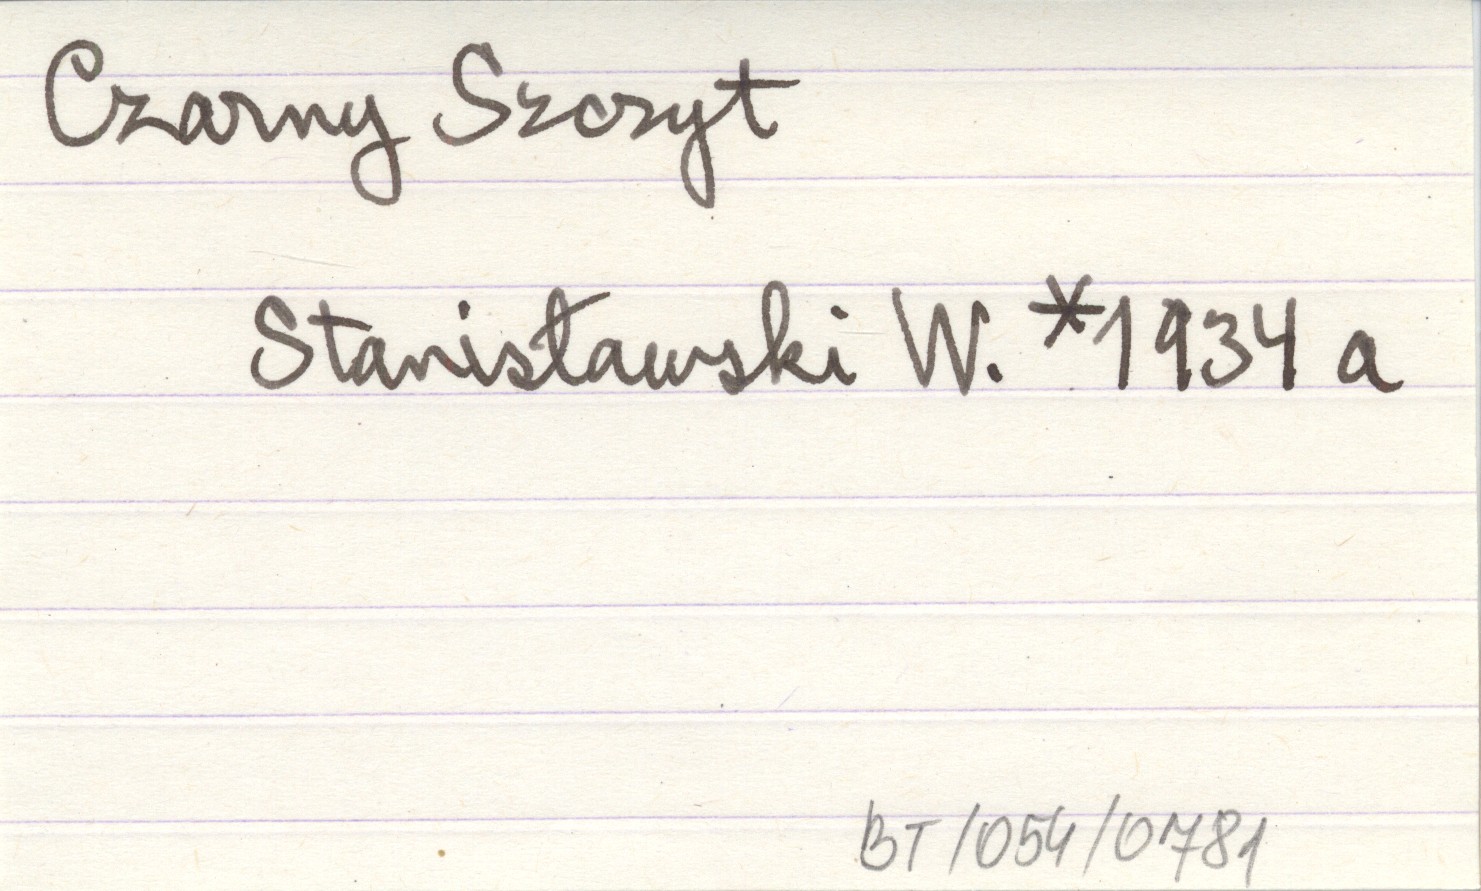 Czarny Szczyt
Stanisławski W. *1934 a
BT/054/0781